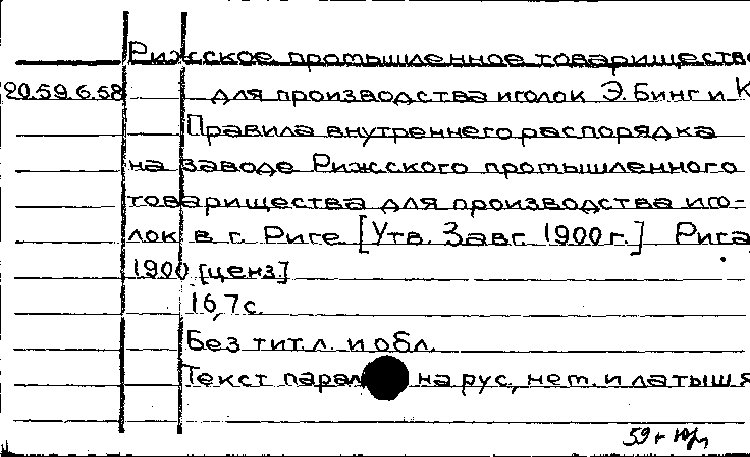 Рижское промышленное товарищество
20.59.6.58 для производства иголок Э. Бинг и К
Правила внутреннего распорядка
на заводе Рижского промышленного
товарищества для производства иго-
лок в г. Риге. [Утв. 3 авг. 1900 г.] Рига,
1900 [ценз.]
16,7 с.
Без тит. л. и обл.
Текст парал на рус., нем. и латыш я
59 г